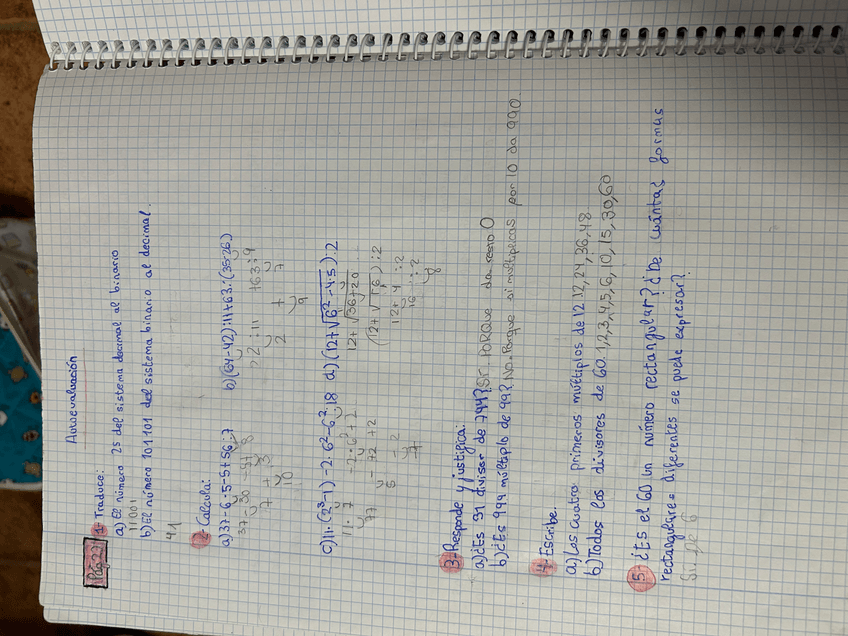 Autoevaluación
Pág 27
1-Traduce:
a) El número 25 del sistema decimal al binario
11001
b) El número 101101 del sistema binario al decimal.
2-Calcula:
a) 37-6·5-5+56:7 b) (64-42):11+63:(35-26)
22:11 +63:9
2 + 7
9
c) 11·(2³-1)-2·6²-6²:18 d) (12+√6²-4·5):2
11·7 -2·6²+2
77 -72 +2
5 - 2
3-Responde y justifica:
a) ¿Es 31 divisor de 744? Sí porque da resto 0
b) ¿Es 999 múltiplo de 99? No. Porque si multiplicas por 10 da 990.
4-Escribe.
a) Los cuatro primeros múltiplos de 12 12,24,36,48
b) Todos los divisores de 60. 1,2,3,4,5,6,10,15,30,60
5-¿Es el 60 un número rectangular? ¿De cuántas formas
rectangulares diferentes se puede expresar?
Si. De 6